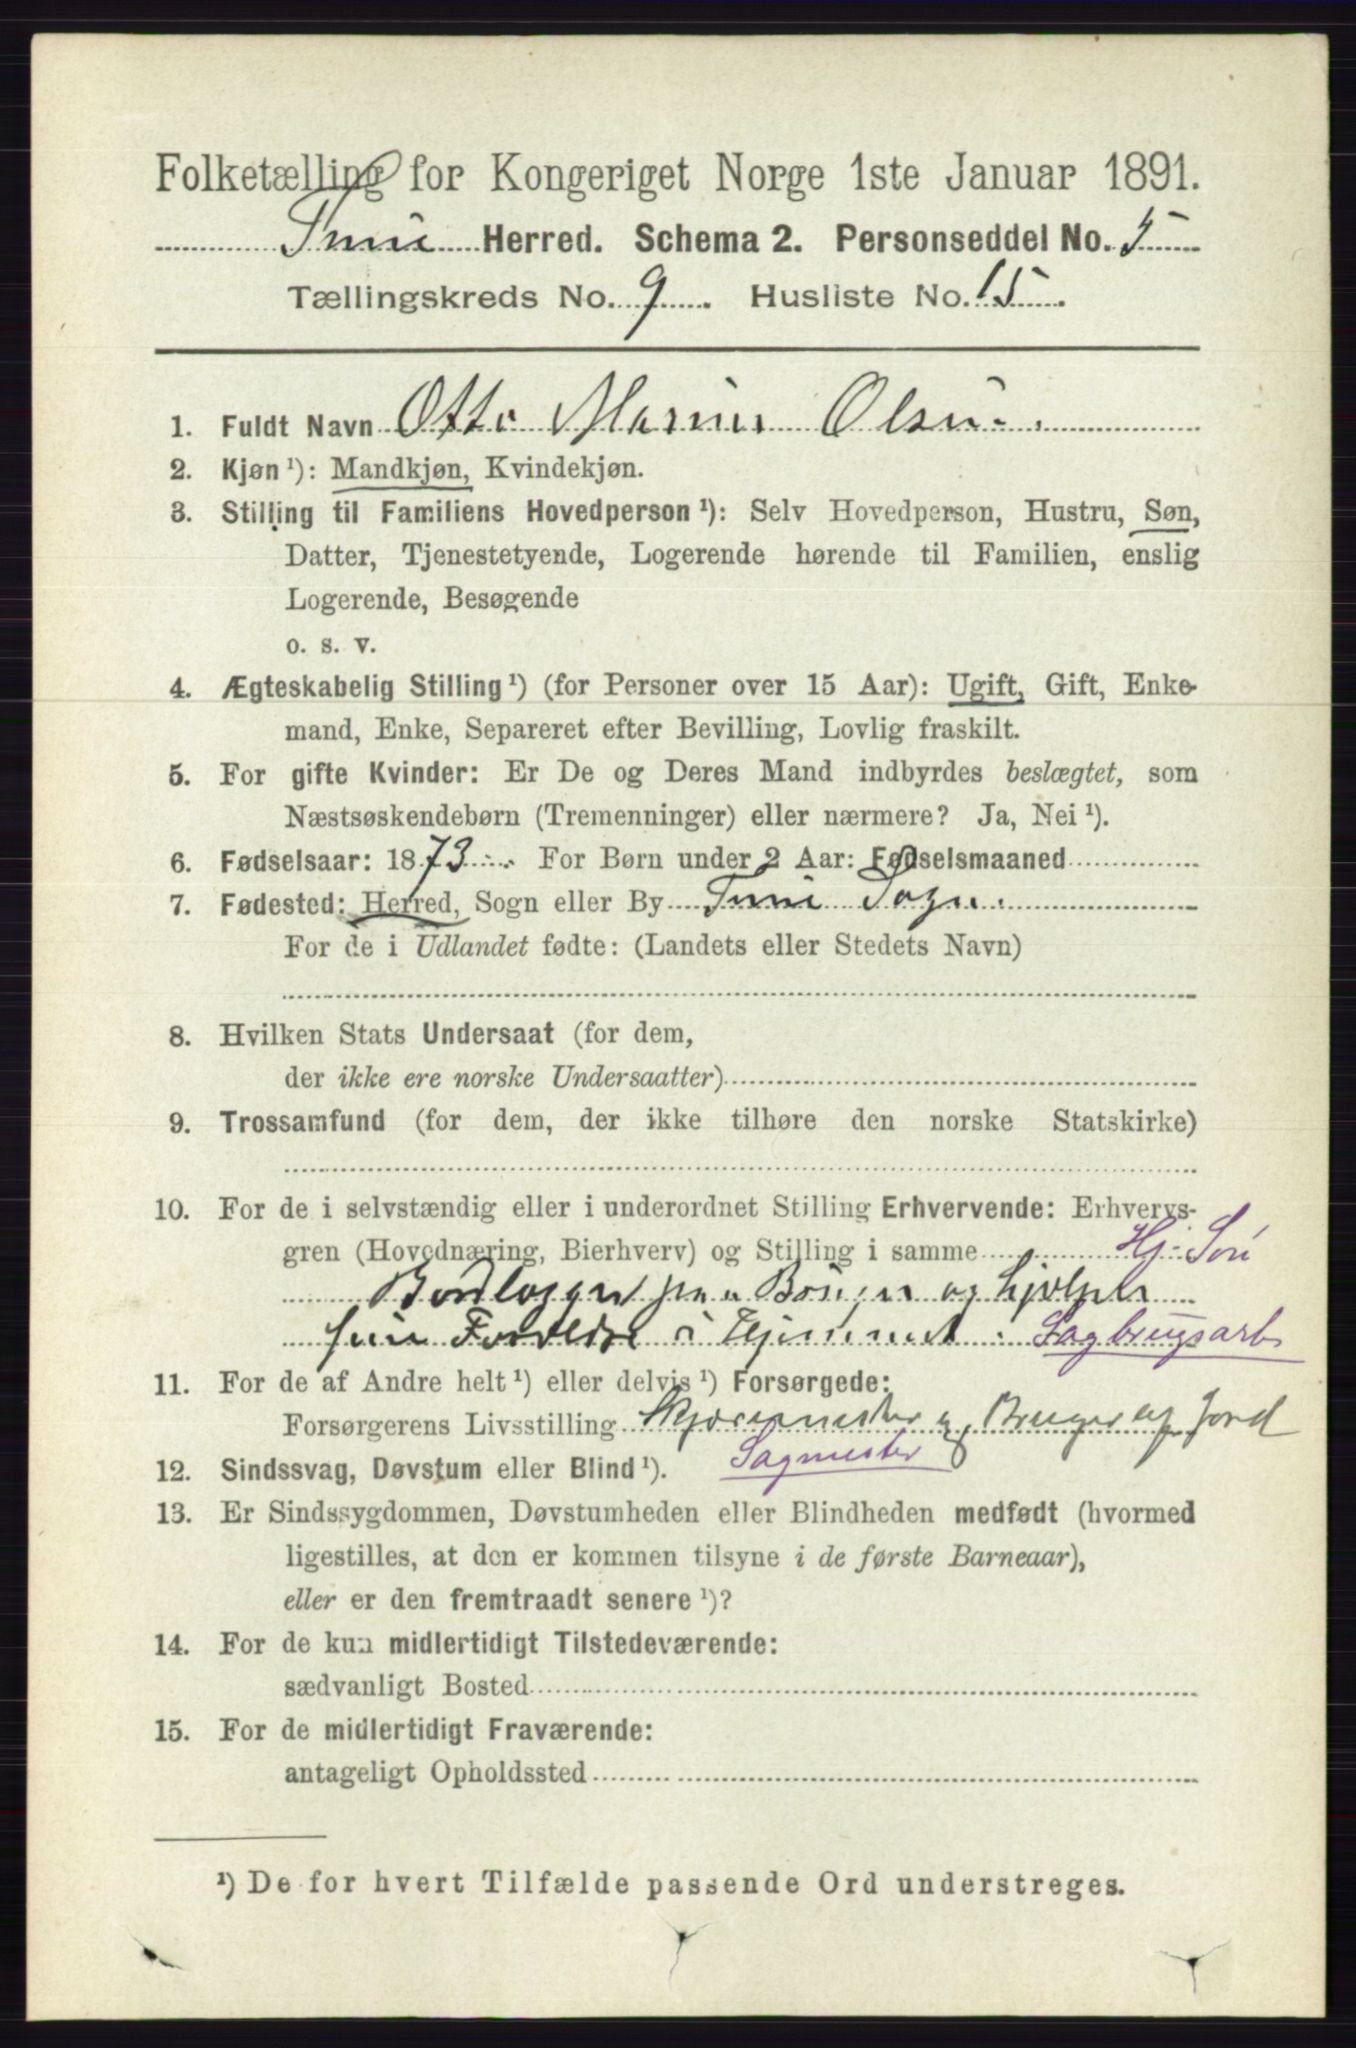 Folketælling for Kongeriget Norge 1ste Januar 1891.
Tune Herred. Schema 2. Personseddel No. 5
Tællingskreds No. 9. Husliste No. 15.
1. Fuldt Navn Otto Marius Olsen.
2. Kjøn ¹): Mandkjøn, Kvindekjøn.
3. Stilling til Familiens Hovedperson ¹): Selv Hovedperson, Hustru, Søn,
Datter, Tjenestetyende, Logerende hørende til Familien, enslig
Logerende, Besøgende
o. s. v.
4. Ægteskabelig Stilling ¹) (for Personer over 15 Aar): Ugift, Gift, Enke-
mand, Enke, Separeret efter Bevilling, Lovlig fraskilt.
5. For gifte Kvinder: Er De og Deres Mand indbyrdes beslægtet, som
Næstsøskendebørn (Tremenninger) eller nærmere? Ja, Nei ¹).
6. Fødselsaar: 1873. For Børn under 2 Aar: Fødselsmaaned
7. Fødested: Herred, Sogn eller By Tune Sogn.
For de i Udlandet fødte: (Landets eller Stedets Navn)
8. Hvilken Stats Undersaat (for dem,
der ikke ere norske Undersaatter)
9. Trossamfund (for dem, der ikke tilhøre den norske Statskirke)
10. For de i selvstændig eller i underordnet Stilling Erhvervende: Erhvervs-
gren (Hovednæring, Bierhverv) og Stilling i samme Hj. Søn
Bordlægger paa og hjælper
sine Forældre i Hjemmet. Sagbrugsarb
11. For de af Andre helt ¹) eller delvis ¹) Forsørgede:
Forsørgerens Livsstilling Skjæremester og Bruger af Jord
12. Sindssvag, Døvstum eller Blind ¹). Sagmester
13. Er Sindssygdommen, Døvstumheden eller Blindheden medfødt (hvormed
ligestilles, at den er kommen tilsyne i de første Barneaar),
eller er den fremtraadt senere ¹)?
14. For de kun midlertidigt Tilstedeværende:
sædvanligt Bosted
15. For de midlertidigt Fraværende:
antageligt Opholdssted
¹) De for hvert Tilfælde passende Ord understreges.